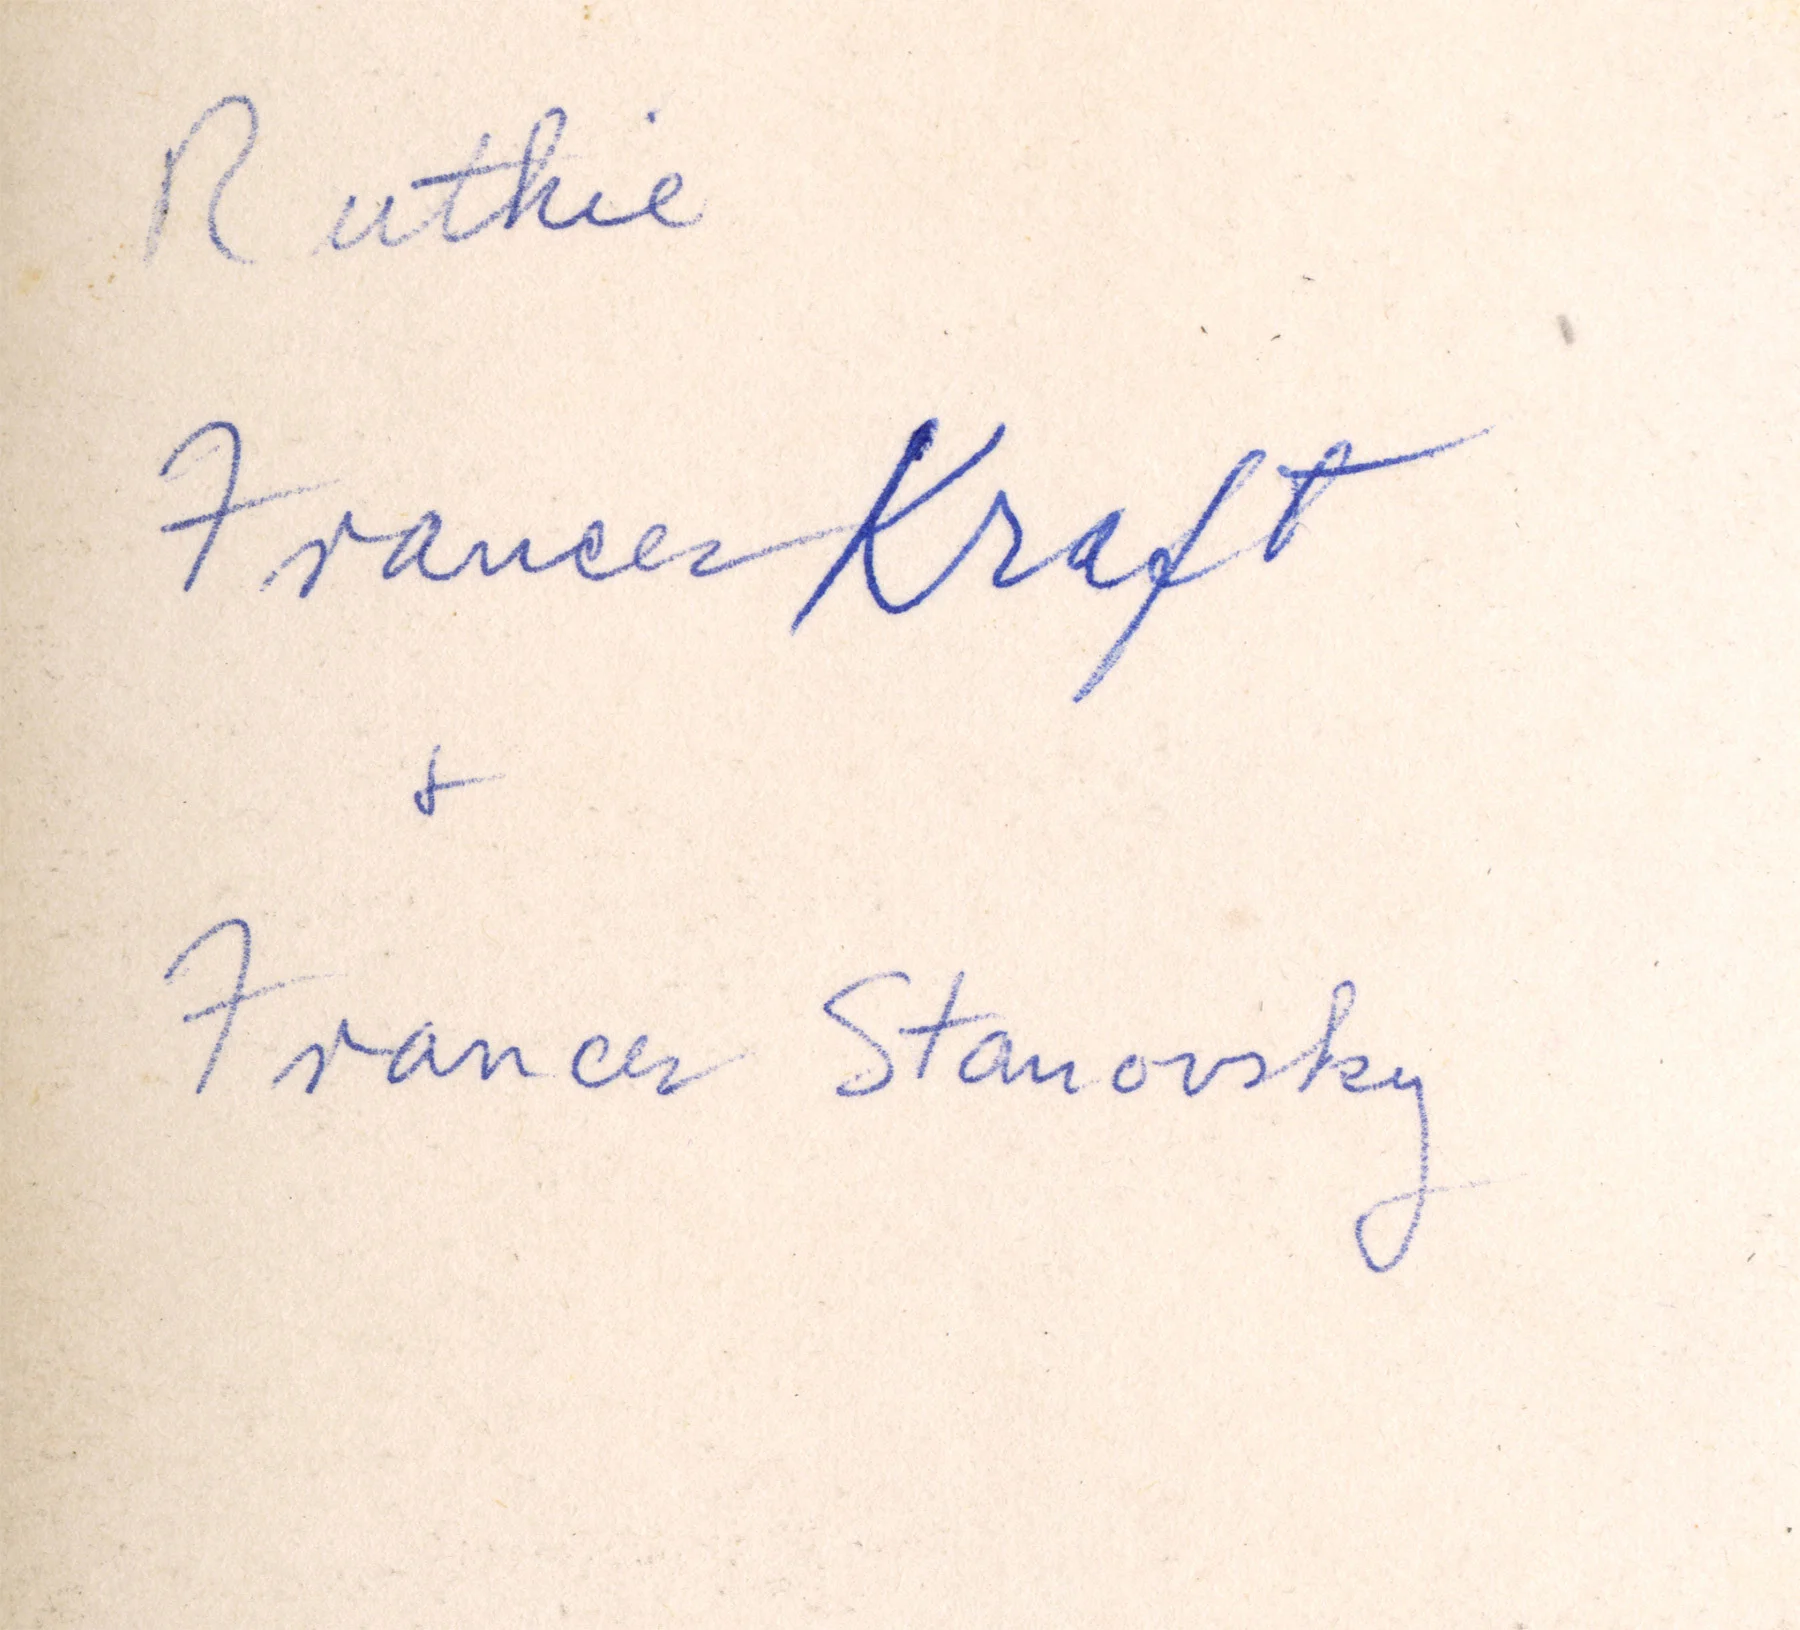 Ruthie
Frances Kraft
&
Frances Stanovsky